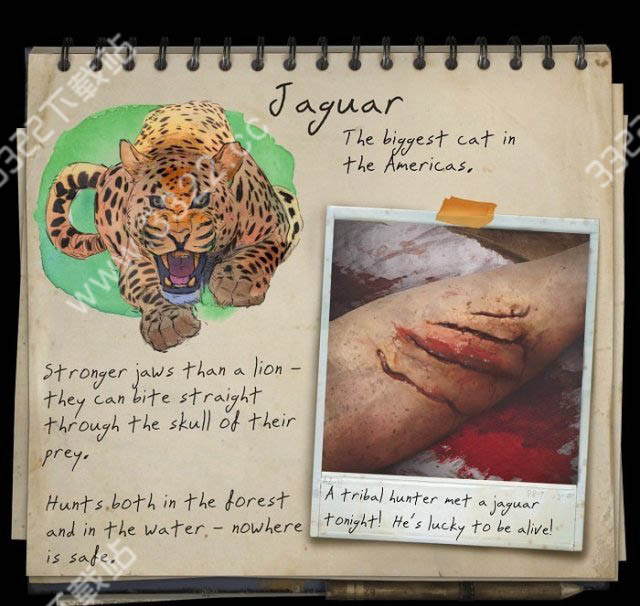 Jaguar
The biggest cat in
the Americas.
Stronger jaws than a lion –
they can bite straight
through the skull of their
prey.
Hunts both in the forest
and in the water – nowhere
is safe.
A tribal hunter met a jaguar
tonight! He's lucky to be alive!
3322下载站
www.3322.cc
3322下载站
下载站